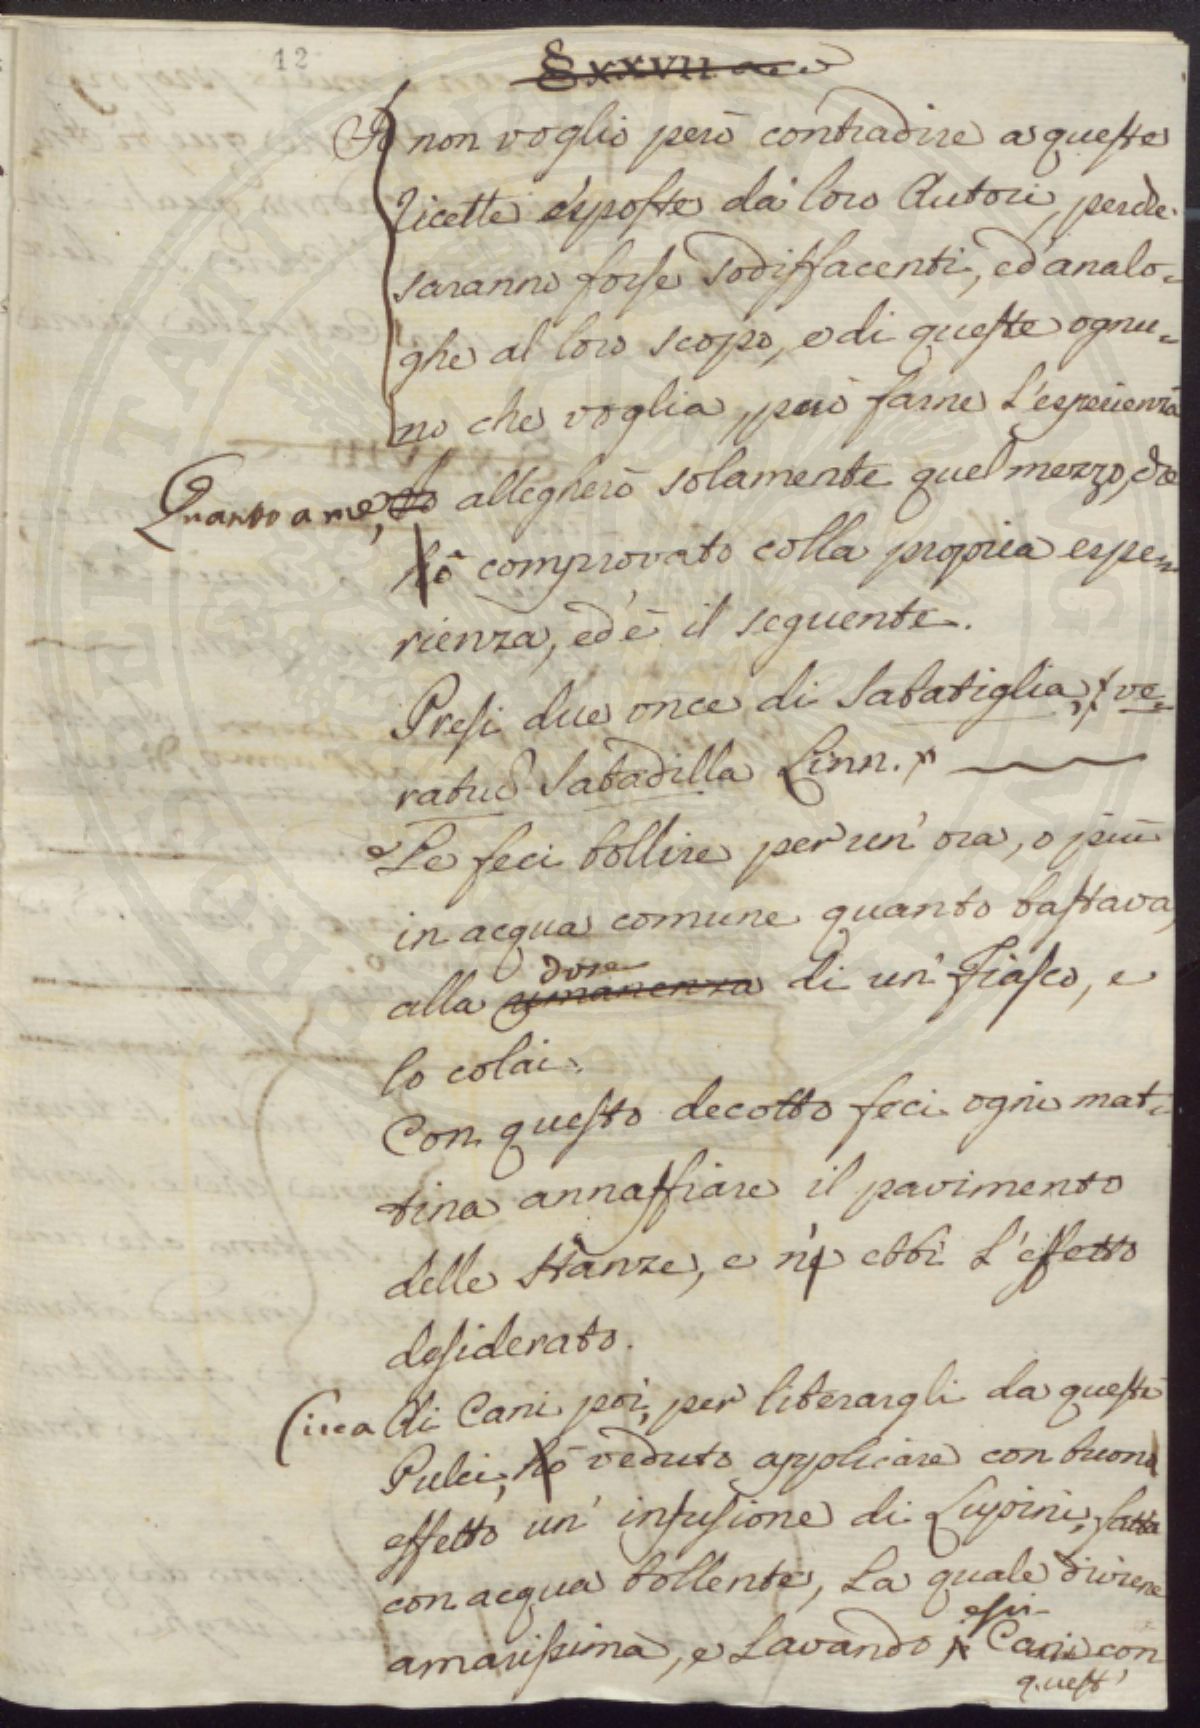 12
§ XXVII
Io non voglio però contradire a queste
ricette esposte da' loro Autori, perche
saranno forse sodisfacenti, ed analo-
ghe al loro scopo, e di queste ognu-
no che voglia, può farne l'esperienza
Quanto a me, Io allegherò solamente quel mezzo, che
hò comprovato colla propria espe-
rienza, ed è il seguente.
Presi due once di Sabatiglia, ve-
ratrũ Sabadilla Linn.
e Le feci bollire per un' ora, o più
in acqua comune quanto bastava
dose
alla rimanenza di un' Fiasco, e
lo colai.
Con questo decotto feci ogni mat-
tina annaffiare il pavimento
delle Stanze, e n' ebbi l'effetto
desiderato.
Circa Ai Cani poi, per liberargli da queste
Pulci, hò veduto applicare con buono
effetto un' infusione di Lupini, fatta
con acqua bollente, La quale diviene
amarissima, e Lavando i Cani con
quest'